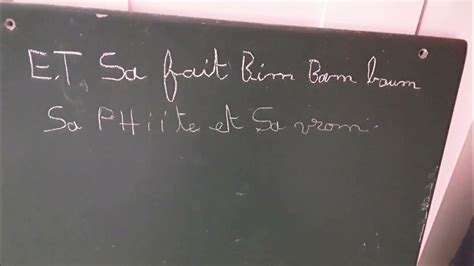 ET Sa fait Bim Bam baum
Sa PHiite et Sa vrom.